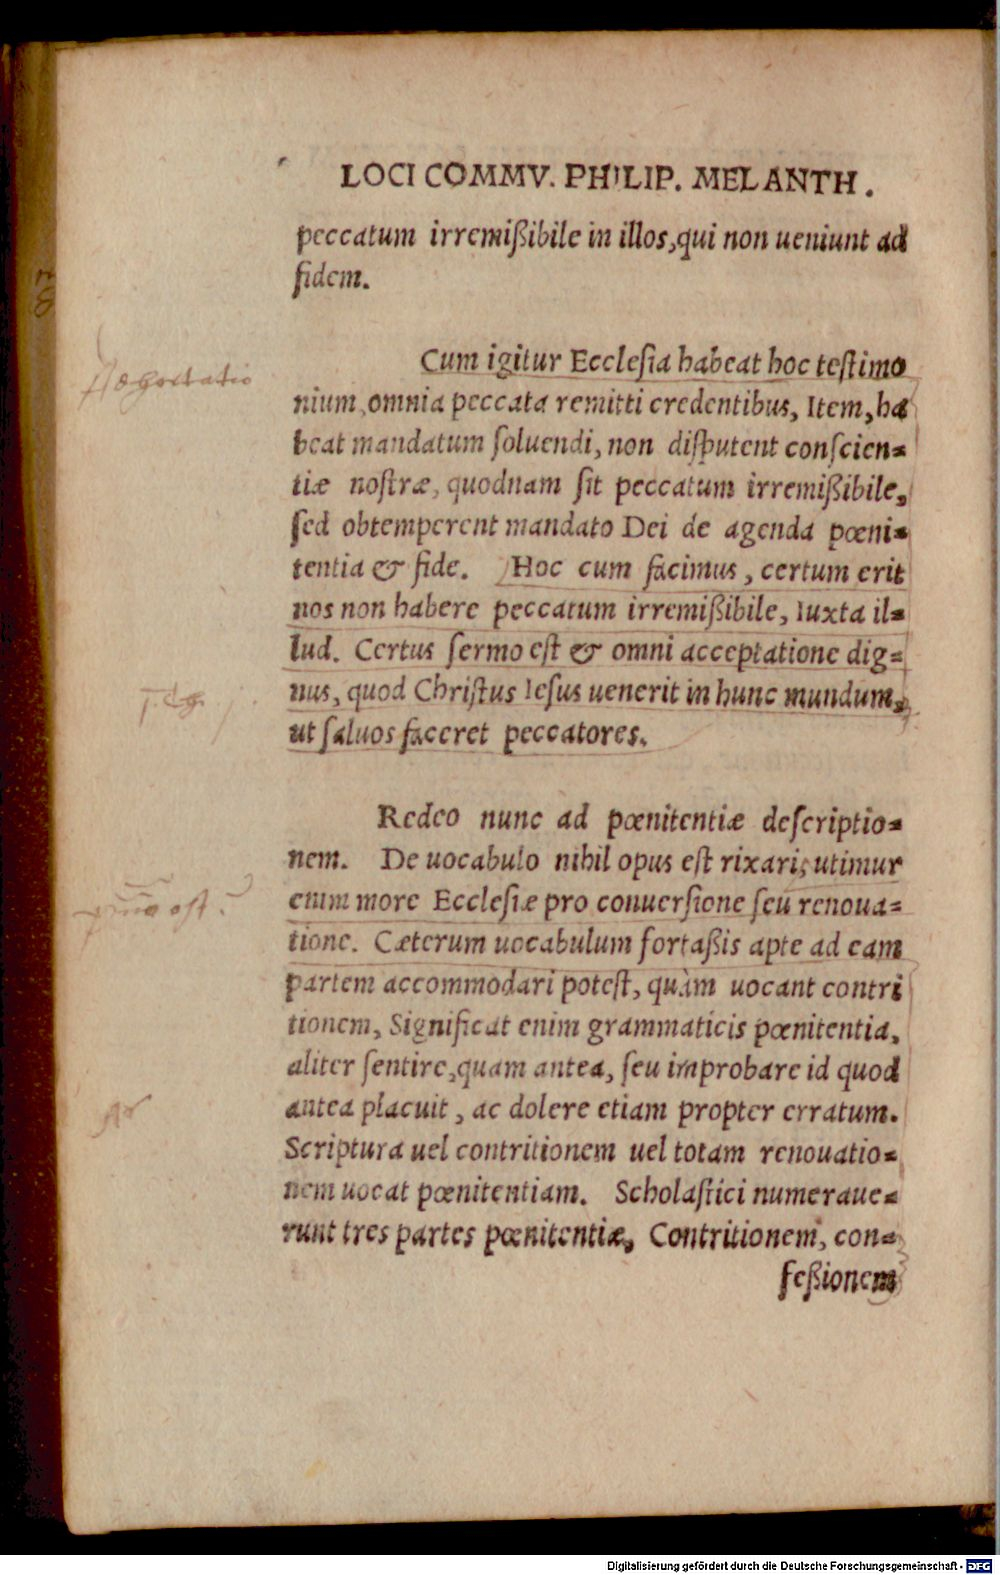 LOCI COMMV. PHILIP. MELANTH.
peccatum irremißibile in illos, qui non ueniunt ad
fidem.
Cum igitur Ecclesia habeat hoc testimo
Adhortatio
nium, omnia peccata remitti credentibus, Item, ha
beat mandatum soluendi, non disputent conscien=
tiæ nostræ, quodnam sit peccatum irremißibile,
sed obtemperent mandato Dei de agenda pœni=
tentia & fide. Hoc cum facimus, certum erit
nos non habere peccatum irremißibile, Iuxta il=
lud. Certus sermo est & omni acceptatione dig=
nus, quod Christus Iesus uenerit in hunc mundum,
ut saluos faceret peccatores.
Redeo nunc ad pœnitentiæ descriptio=
nem. De uocabulo nihil opus est rixari, utimur
enim more Ecclesiæ pro conuersione seu renoua=
tione. Cæterum uocabulum fortaßis apte ad eam
partem accommodari potest, quàm uocant contri
tionem, Significat enim grammaticis pœnitentia,
aliter sentire, quam antea, seu improbare id quod
antea placuit, ac dolere etiam propter erratum.
Scriptura uel contritionem uel totam renouatio=
nem uocat pœnitentiam. Scholastici numeraue=
runt tres partes pœnitentiæ, Contritionem, con=
feßionem
Digitalisierung gefördert durch die Deutsche Forschungsgemeinschaft - DFG